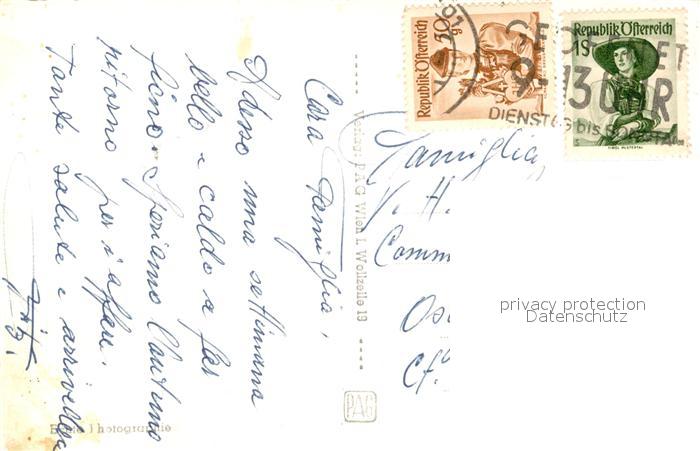 Cara Famiglia,
Adesso una settimana
bello e caldo a
ficino. Speriamo l'autunno
ritorno per i affari.
Tante salute e arrivederci
Verlag: PAG Wien I, Wollzeile 19
PAG
Echte Photographie
Republik Österreich
30g
Republik Österreich
1S
TIROL PUSTERTAL
GEÖFFNET
9-13 UHR
DIENSTAG bis
Famiglia
V. H.
Comm
Os
privacy protection
Datenschutz